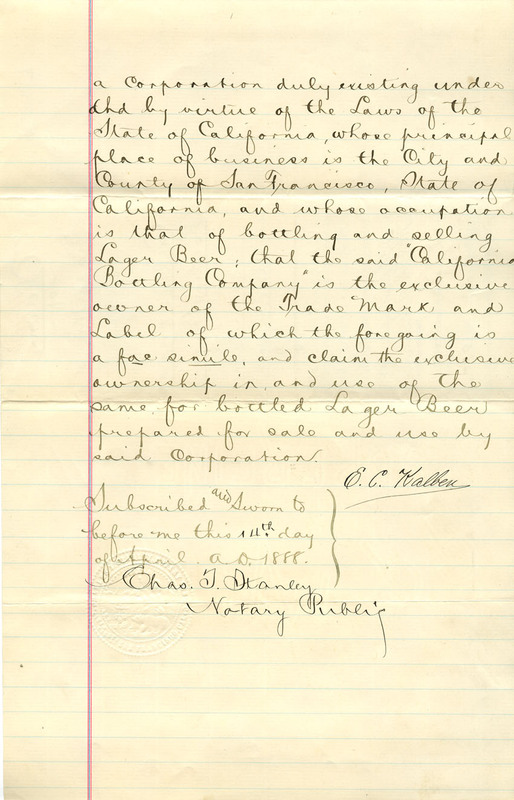 a corporation duly existing under
and by virtue of the Laws of the
State of California, whose principal
place of business is the City and
County of San Francisco, State of
California, and whose occupation
is that of bottling and selling
Lager Beer; that the said "California
Bottling Company" is the exclusive
owner of the Trade Mark and
Label of which the foregoing is
a fac simile, and claim the exclusive
ownership in, and use of the
same, for bottled Lager Beer
prepared for sale and use by
said Corporation.
E. C. Kalben
Subscribed and Sworn to
before me this 14th day
of April A.D. 1888.
Chas. T. Stanley
Notary Public